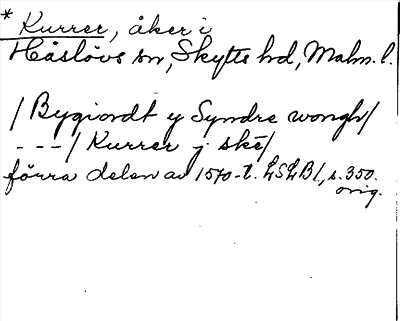 * Kurrer, åker i
Håslövs sn, Skytts hd, Malm. l.
/Bygiordt y Syndre wongh/
---/ Kurrer j skè/
förra delen av 1570-t. LSLB1, s. 350.
orig.